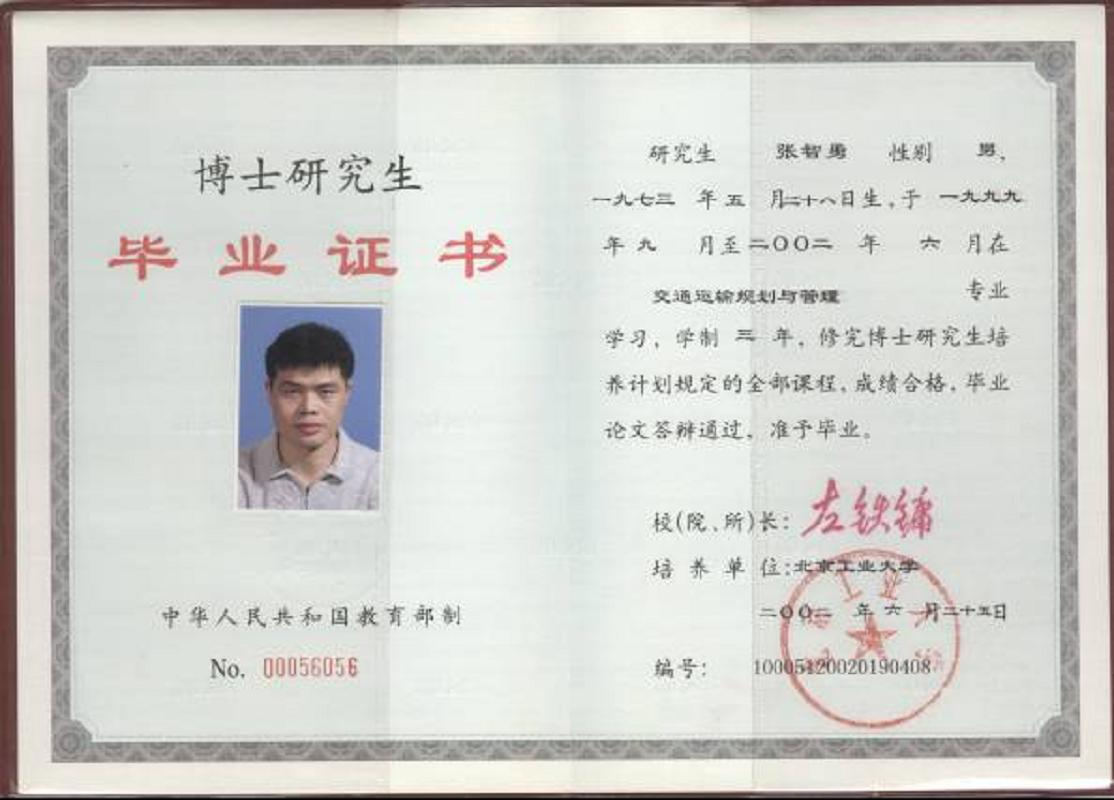 博士研究生
毕业证书
中华人民共和国教育部制
No. 00056056
研究生 张智勇 性别 男、
一九七三 年 五 月二十八日生,于 一九九九
年 九 月至 二〇〇二 年 六 月在
交通运输规划与管理 专业
学习, 学制 三 年, 修完博士研究生培
养计划规定的全部课程, 成绩合格, 毕业
论文答辩通过, 准予毕业。
校(院、所)长: 左铁镛
培养单位:北京工业大学
二〇〇二 年 六 月二十五日
编号: 10005120020190408